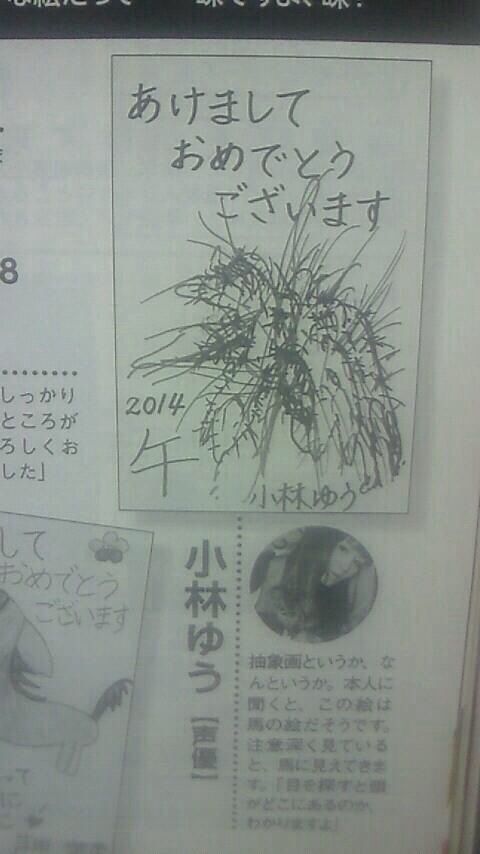 あけまして
おめでとう
ございます
2014
午
小林ゆう
8
しっかり
ところが
ろしくお
した」
して
おめでとう
ございます
小林ゆう【声優】
抽象画というか、な
んというか。本人に
聞くと、この絵は
馬の絵だそうです。
注意深く見ている
と、馬に見えてきま
す。「目を探すと頭
がどこにあるのか、
わかりますよ」